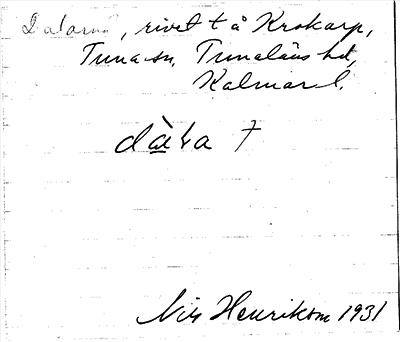 Dalarna, rivet t å Krokarp,
Tuna sn, Tunaläns hd,
Kalmar l.
dàɫa †
Nils Henrikson 1931